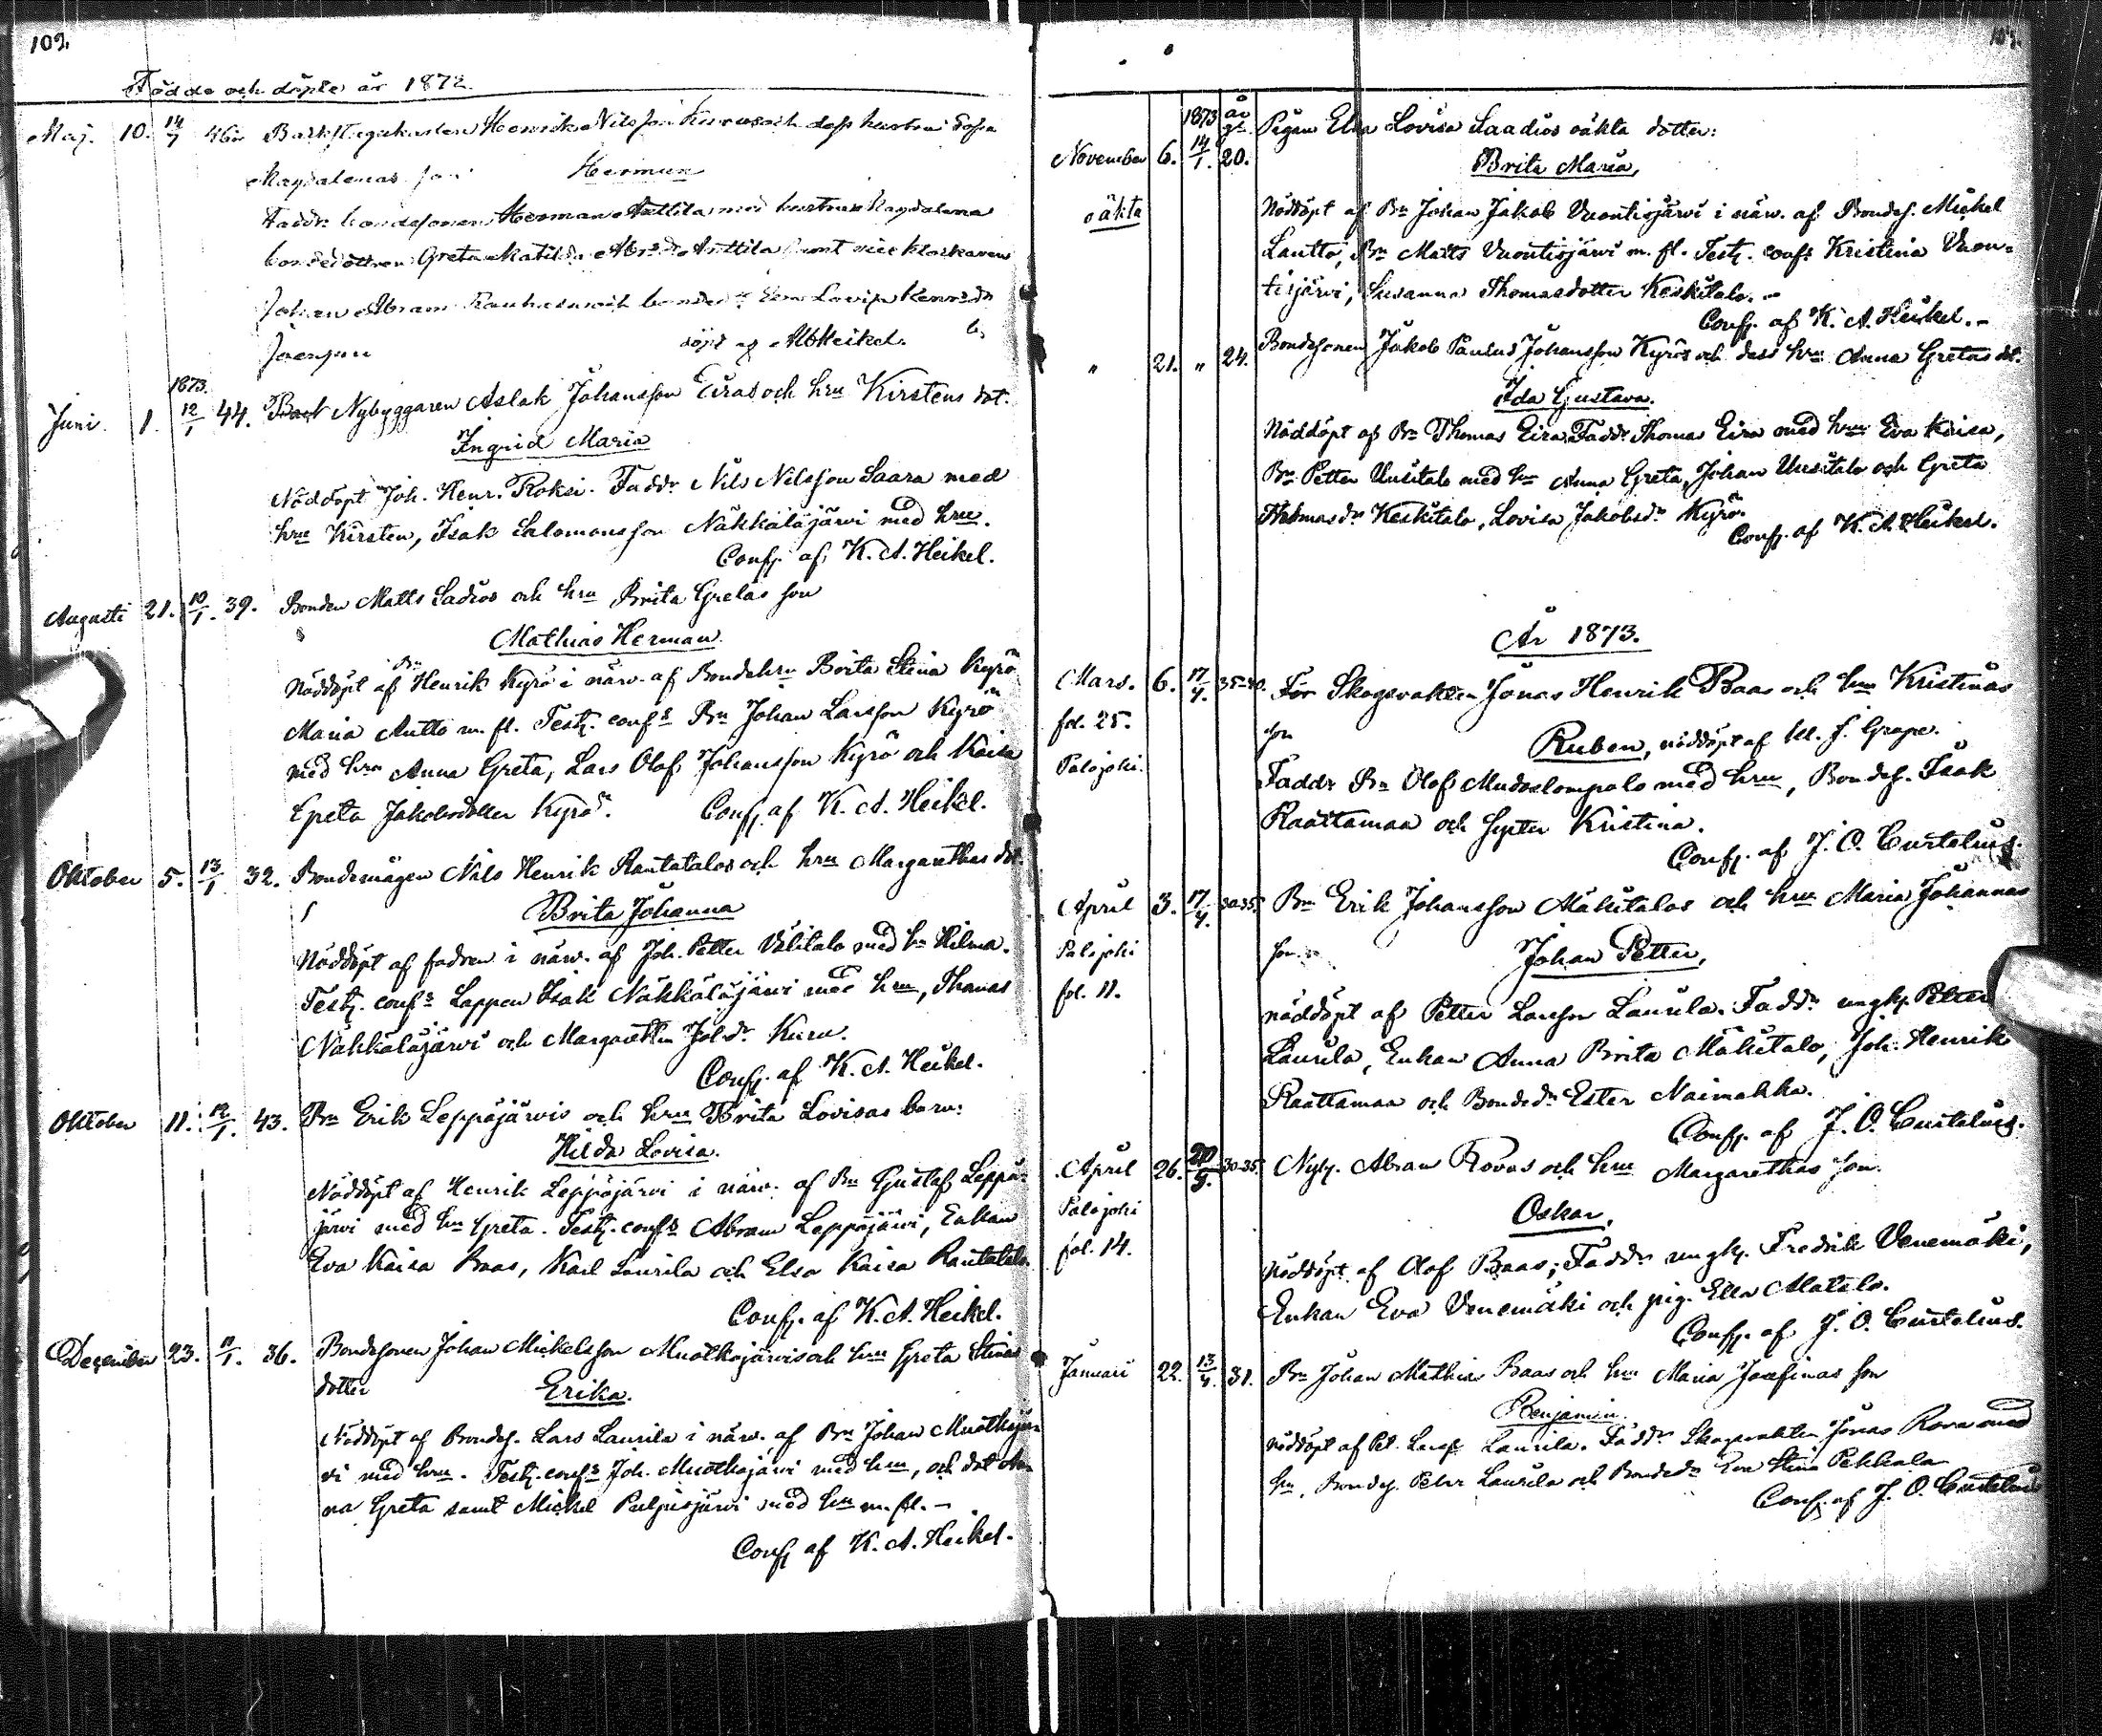 109.
Födde och döpte år 1872.
Maj. 10. 14/7 46 Henrik Nilsson och dess hustru Sofia
Magdalenas son Herman
Faddr. bondesonen Herman Anttila med hustru Magdalena
bondedottren Greta Matilda Abr:dr Anttila samt klockaren
Johan Abram och Lovisa
döpt af Heikel.
1873.
Juni 1. 12/1 44. Nybyggaren Aslak Johansson Eiras och hru Kirstens dot.
Ingrid Maria
Nöddöpt Joh. Henr. Roksi. Faddr Nils Nilsson Saara med
hru Kirsten, Isak Salomonsson Näkkäläjärvi med hru.
Conf. af K. A. Heikel.
Augusti 21. 10/1. 39. Bonden Matts Sadios och hru Brita Gretas son
Mathias Herman
Nöddöpt af Bn Henrik Kyrö i närv. af Bondehru Brita Stina Kyrö
Maria Autto m. fl. Test. confs Bn Johan Larsson Kyrö
med hru Anna Greta, Lars Olof Johansson Kyrö och Kaisa
Greta Jakobsdotter Kyrö. Conf. af K. A. Heikel.
Oktober 5. 13/1 32. Bondemågen Nils Henrik Rantatalos och hru Margarethas dot.
Brita Johanna
Nöddöpt af fadren i närv. af Joh. Petter Välitalo med hn Hilma.
Test. confs Lappen Isak Näkkäläjärvi med hru, Thomas
Näkkäläjärvi och Margaretha Joh.dr Kuru.
Conf. af K. A. Heikel.
Oktober 11. 12/1. 43. Bn Erik Leppäjärvis och hru Brita Lovisas barn:
Hilda Lovisa.
Nöddöpt af Henrik Leppäjärvi i närv. af Bn Gustaf Leppä-
järvi med hru Greta. Test. confs Abram Leppäjärvi, Enkan
Eva Kaisa Baas, Karl Laurila och Elsa Kaisa Rantatalo.
Conf. af K. A. Heikel.
December 23. 11/1. 36. Bondesonen Johan Mickelsson Muotkajärvis och hru Greta Stinas
dotter Erika.
Nöddöpt af Bondes. Lars Laurila i närv. af Bn Johan Muotkajär-
vi med hru. Test. confs Joh. Muotkajärvi med hru, och dot. An-
na Greta samt Mickel Palojärvi med hru m. fl. –
Conf. af K. A. Heikel.
109.
1873 år
November 6. 14/1. 20. Pigan Elsa Lovisa Saadios oäkta dotter:
Brita Maria,
oäkta Nöddöpt af Bn Johan Jakob Vuontisjärvi i närv. af Bondes. Mickel
Lautto, Bn Matts Vuontisjärvi m. fl. Test. confs Kristina Vuon-
tisjärvi, Susanna Thomasdotter Keskitalo. –
Conf. af K. A. Heikel. –
" 21. " 24. Bondesonen Jakob Paulus Johansson Kyrös och dess hru Anna Gretas dot.
Ida Gustava.
Nöddöpt af Bn Thomas Eira. Faddr Thomas Eira med hru Eva Kaisa,
Bn Petter Uusitalo med hn Anna Greta, Johan Uusitalo och Greta
Thomasdr Keskitalo, Lovisa Jakobsdr Kyrö.
Conf. af K. A. Heikel.
År 1873.
Mars. 6. 17/4. 35-40. För Skogsvakten Jonas Henrik Baas och hru Kristinas
fol. 25. son Ruben, nöddöpt af J. Grape.
Palojoki. Faddr Bn Olof Mudoslompolo med hru, Bondes. Isak
Raattamaa och syster Kristina.
Conf. af J. O. Curtelius.
April 3. 17/4. 30-35. Bn Erik Johansson Mäkitalos och hru Maria Johannas
Palojoki son Johan Petter,
fol. 11. nöddöpt af Petter Larsson Laurila. Faddr ungk. Petter
Laurila, Enkan Anna Brita Mäkitalo, Joh. Henrik
Raattamaa och Bonded:r Ester Naimakka.
Conf. af J. O. Curtelius.
April 26. 20/5. 30-35. Nyb. Abram Rovas och hru Margarethas son
Palojoki Oskar,
fol. 14. nöddöpt af Olof Baas; Faddr ungk. Fredrik Venemäki,
Enkan Eva Venemäki och pig. Ella Matelo.
Conf. af J. O. Curtelius.
Januari 22. 13/4. 31. Bn Johan Mathias Baas och hru Maria Josefinas son
Benjamin
nöddöpt af Pet. Larss. Laurila. Faddr Skogsvakten Jonas Rova med
hru, Bondes. Petter Laurila och Bondedr Eva Stina Pekkala
Conf. af J. O. Curtelius